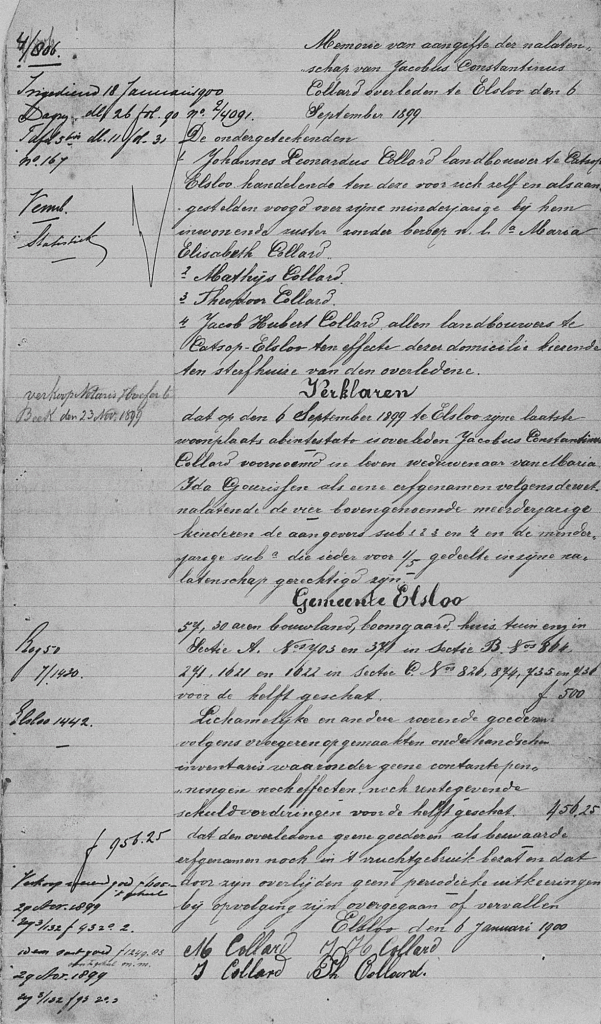 4/806.
Memorie van aangifte der nalaten-
schap van Jacobus Constantinus
Ingediend 18 Januari 1900
Collard overleden te Elsloo den 6
Dagr. dl. 26 fol. 90 no. 2/4091.
September 1899
Tafel 5bis dl. 11 fol. 31
no. 167
De ondergeteekenden
1 Johannes Leonardus Collard landbouwer te Catsop
Elsloo handelende ten deze voor zich zelf en als aan-
gestelden voogd over zijne minderjarige bij hem
inwonende zuster zonder beroep n.l. a Maria
Elisabeth Collard.
Statistiek
2 Mathijs Collard.
3 Theodoor Collard.
4 Jacob Hubert Collard, allen landbouwers te
Catsop-Elsloo ten effecte dezer domicilie kiezende
ten sterfhuize van den overledene.
Verklaren
verkoop Notaris
Beek den 23 Nov. 1899
dat op den 6 September 1899 te Elsloo zijne laatste
woonplaats abintestato is overleden Jacobus Constantinus
Collard voornoemd in leven weduwenaar van Maria
Ida Gourissen als eene erfgenamen volgens de wet
nalatende de vier bovengenoemde meerderjarige
kinderen de aangevers sub 1 2 3 en 4 en de minder-
jarige sub a die ieder voor 1/5 gedeelte in zijne na-
latenschap gerechtigd zijn.
Gemeente Elsloo
57,30 aren bouwland, boomgaard, huis, tuin enz in
Reg 50
Sectie A. Nos 703 en 371 in Sectie B. Nos 864
7/1430.
271, 1621 en 1622 in Sectie C. Nos 826, 874, 735 en 736
voor de helft geschat. f 500
Elsloo 1442.
Lichamelijke en andere roerende goederen
volgens vroeger en opgemaakten onderhandschen
inventaris waaronder geene contante pen-
ningen noch effecten, noch rentegevende
schuldvorderingen voor de helft geschat. 456.25
f 956.25
dat den overledene geene goederen als bezwaarde
erfgenamen noch in 't vruchtgebruik bezat en dat
door zijn overlijden geene periodieke uitkeeringen
29 Nov. 1899
bij opvolging zijn overgegaan of vervallen
Elsloo den 6 Januari 1900
M Collard J H Collard
29 Nov. 1899
J Collard Th Collard.